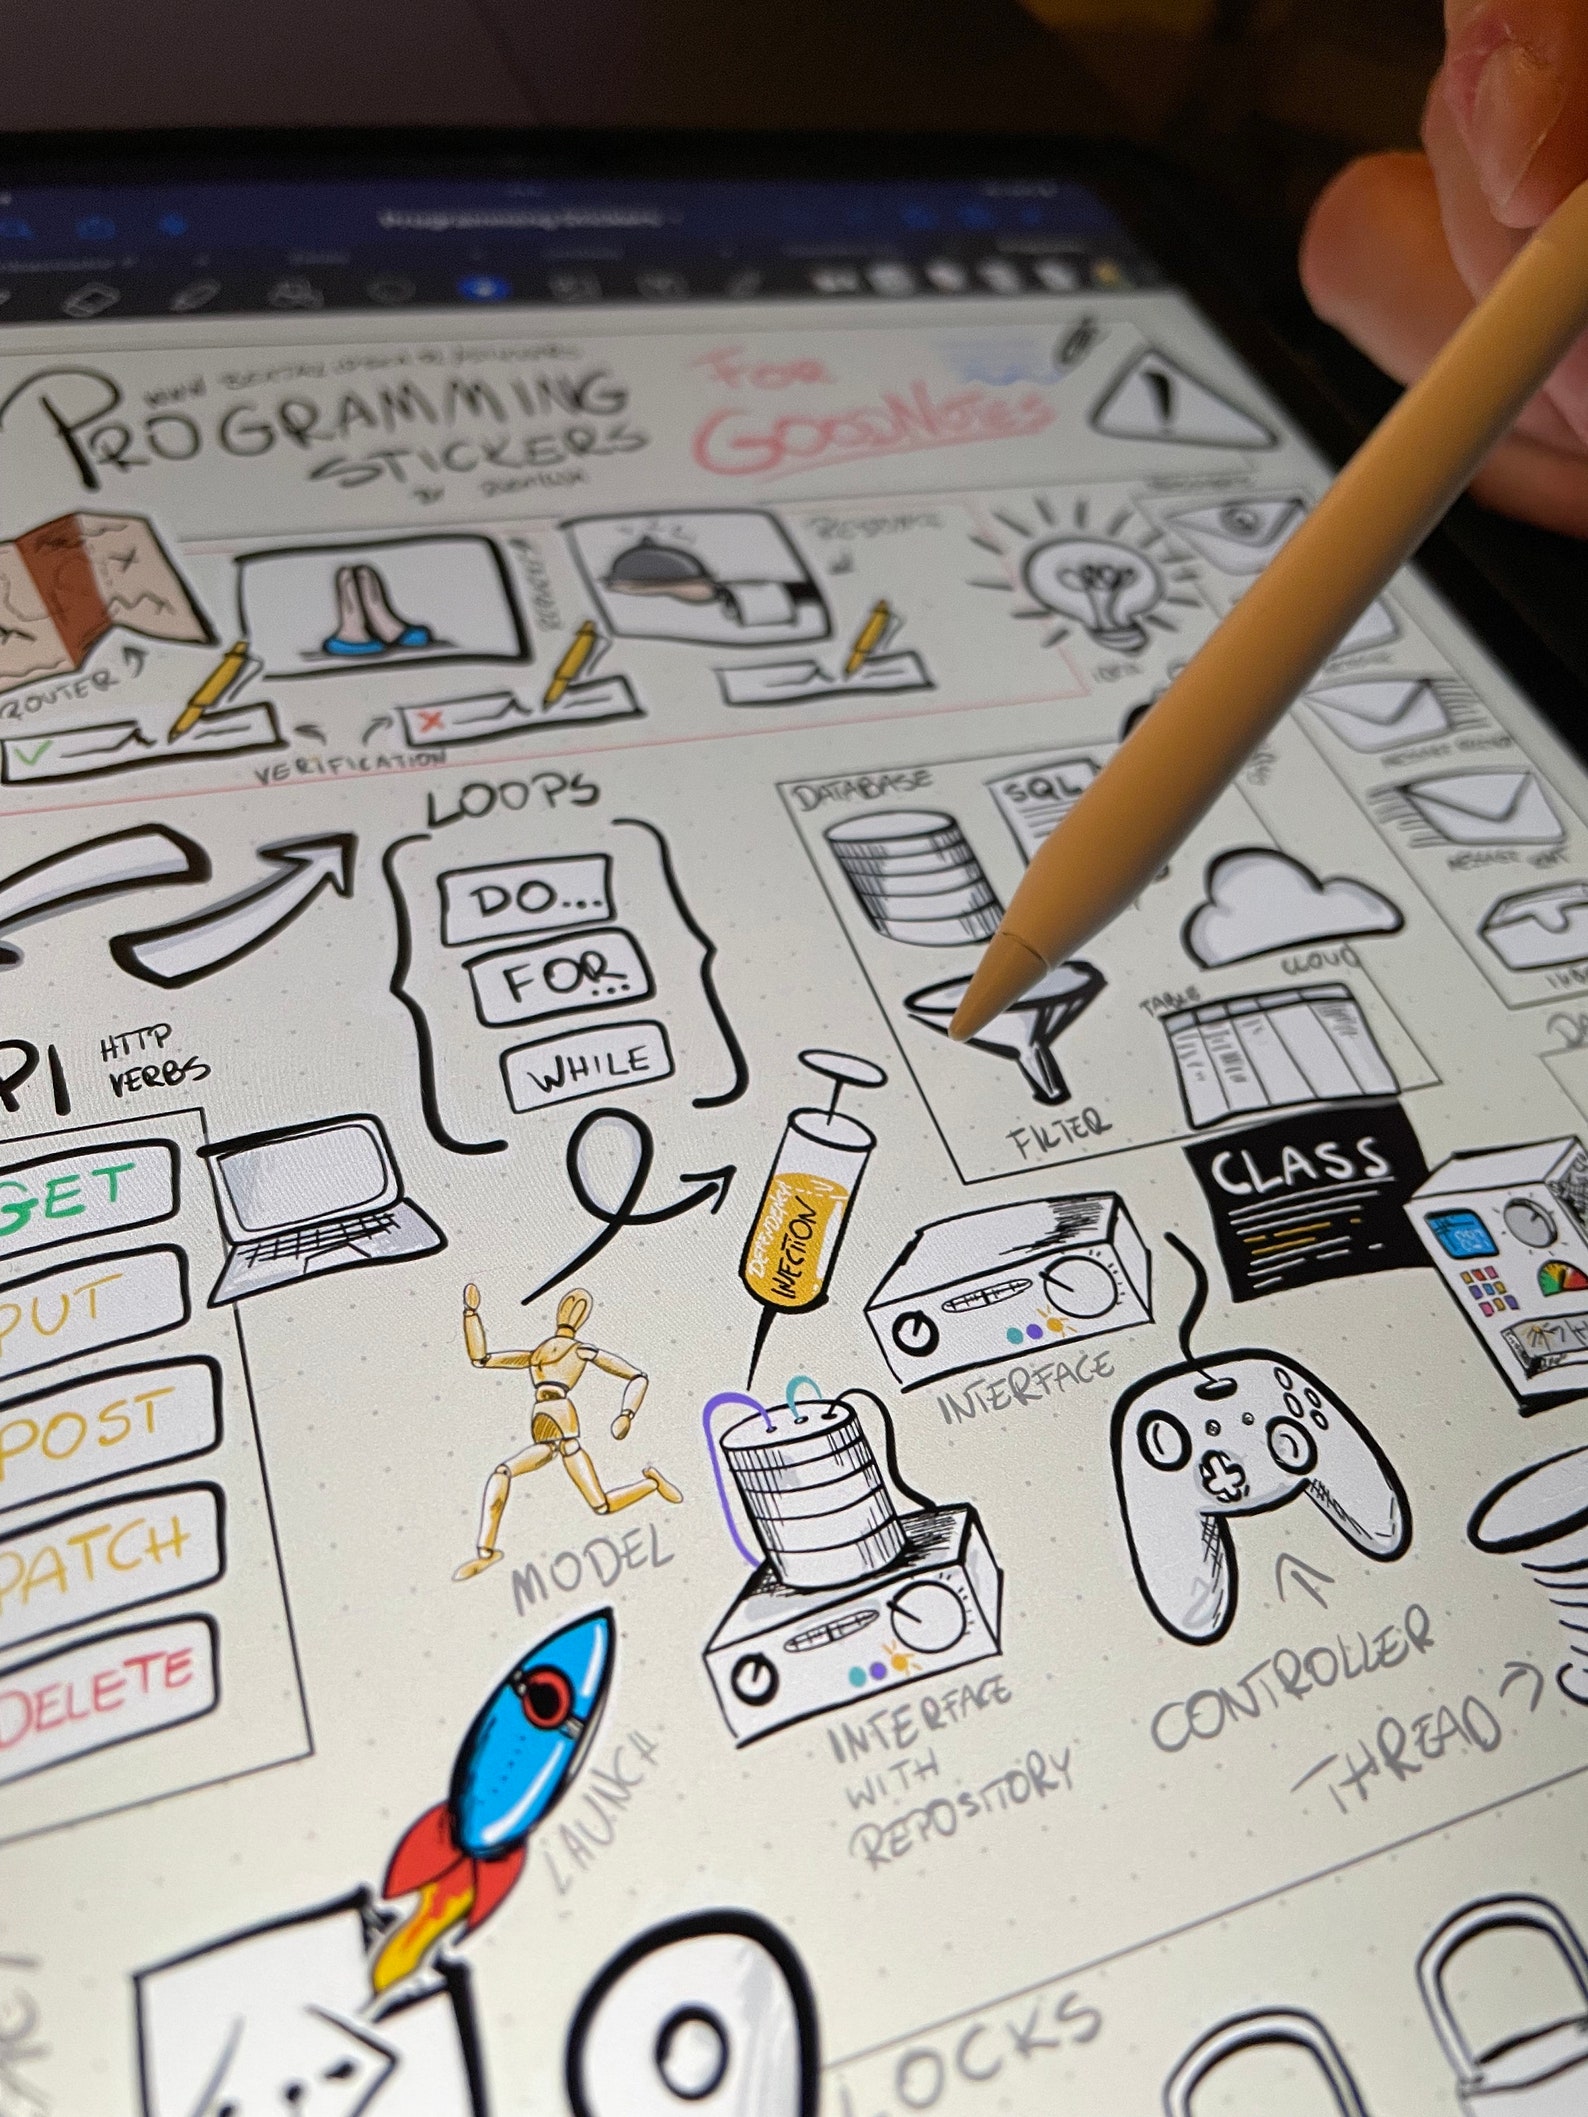 PROGRAMMING
STICKERS
BY
FOR
GOODNOTES
ROUTER
VERIFICATION
REQUEST
LOOPS
DO...
FOR...
WHILE
DATABASE
SQL
CLOUD
TABLE
FILTER
MESSAGE SENT
PI HTTP
VERBS
GET
PUT
POST
PATCH
DELETE
DEPENDENCY
INJECTION
CLASS
INTERFACE
MODEL
INTERFACE
WITH
REPOSITORY
CONTROLLER
THREAD
LAUNCH
LOCKS